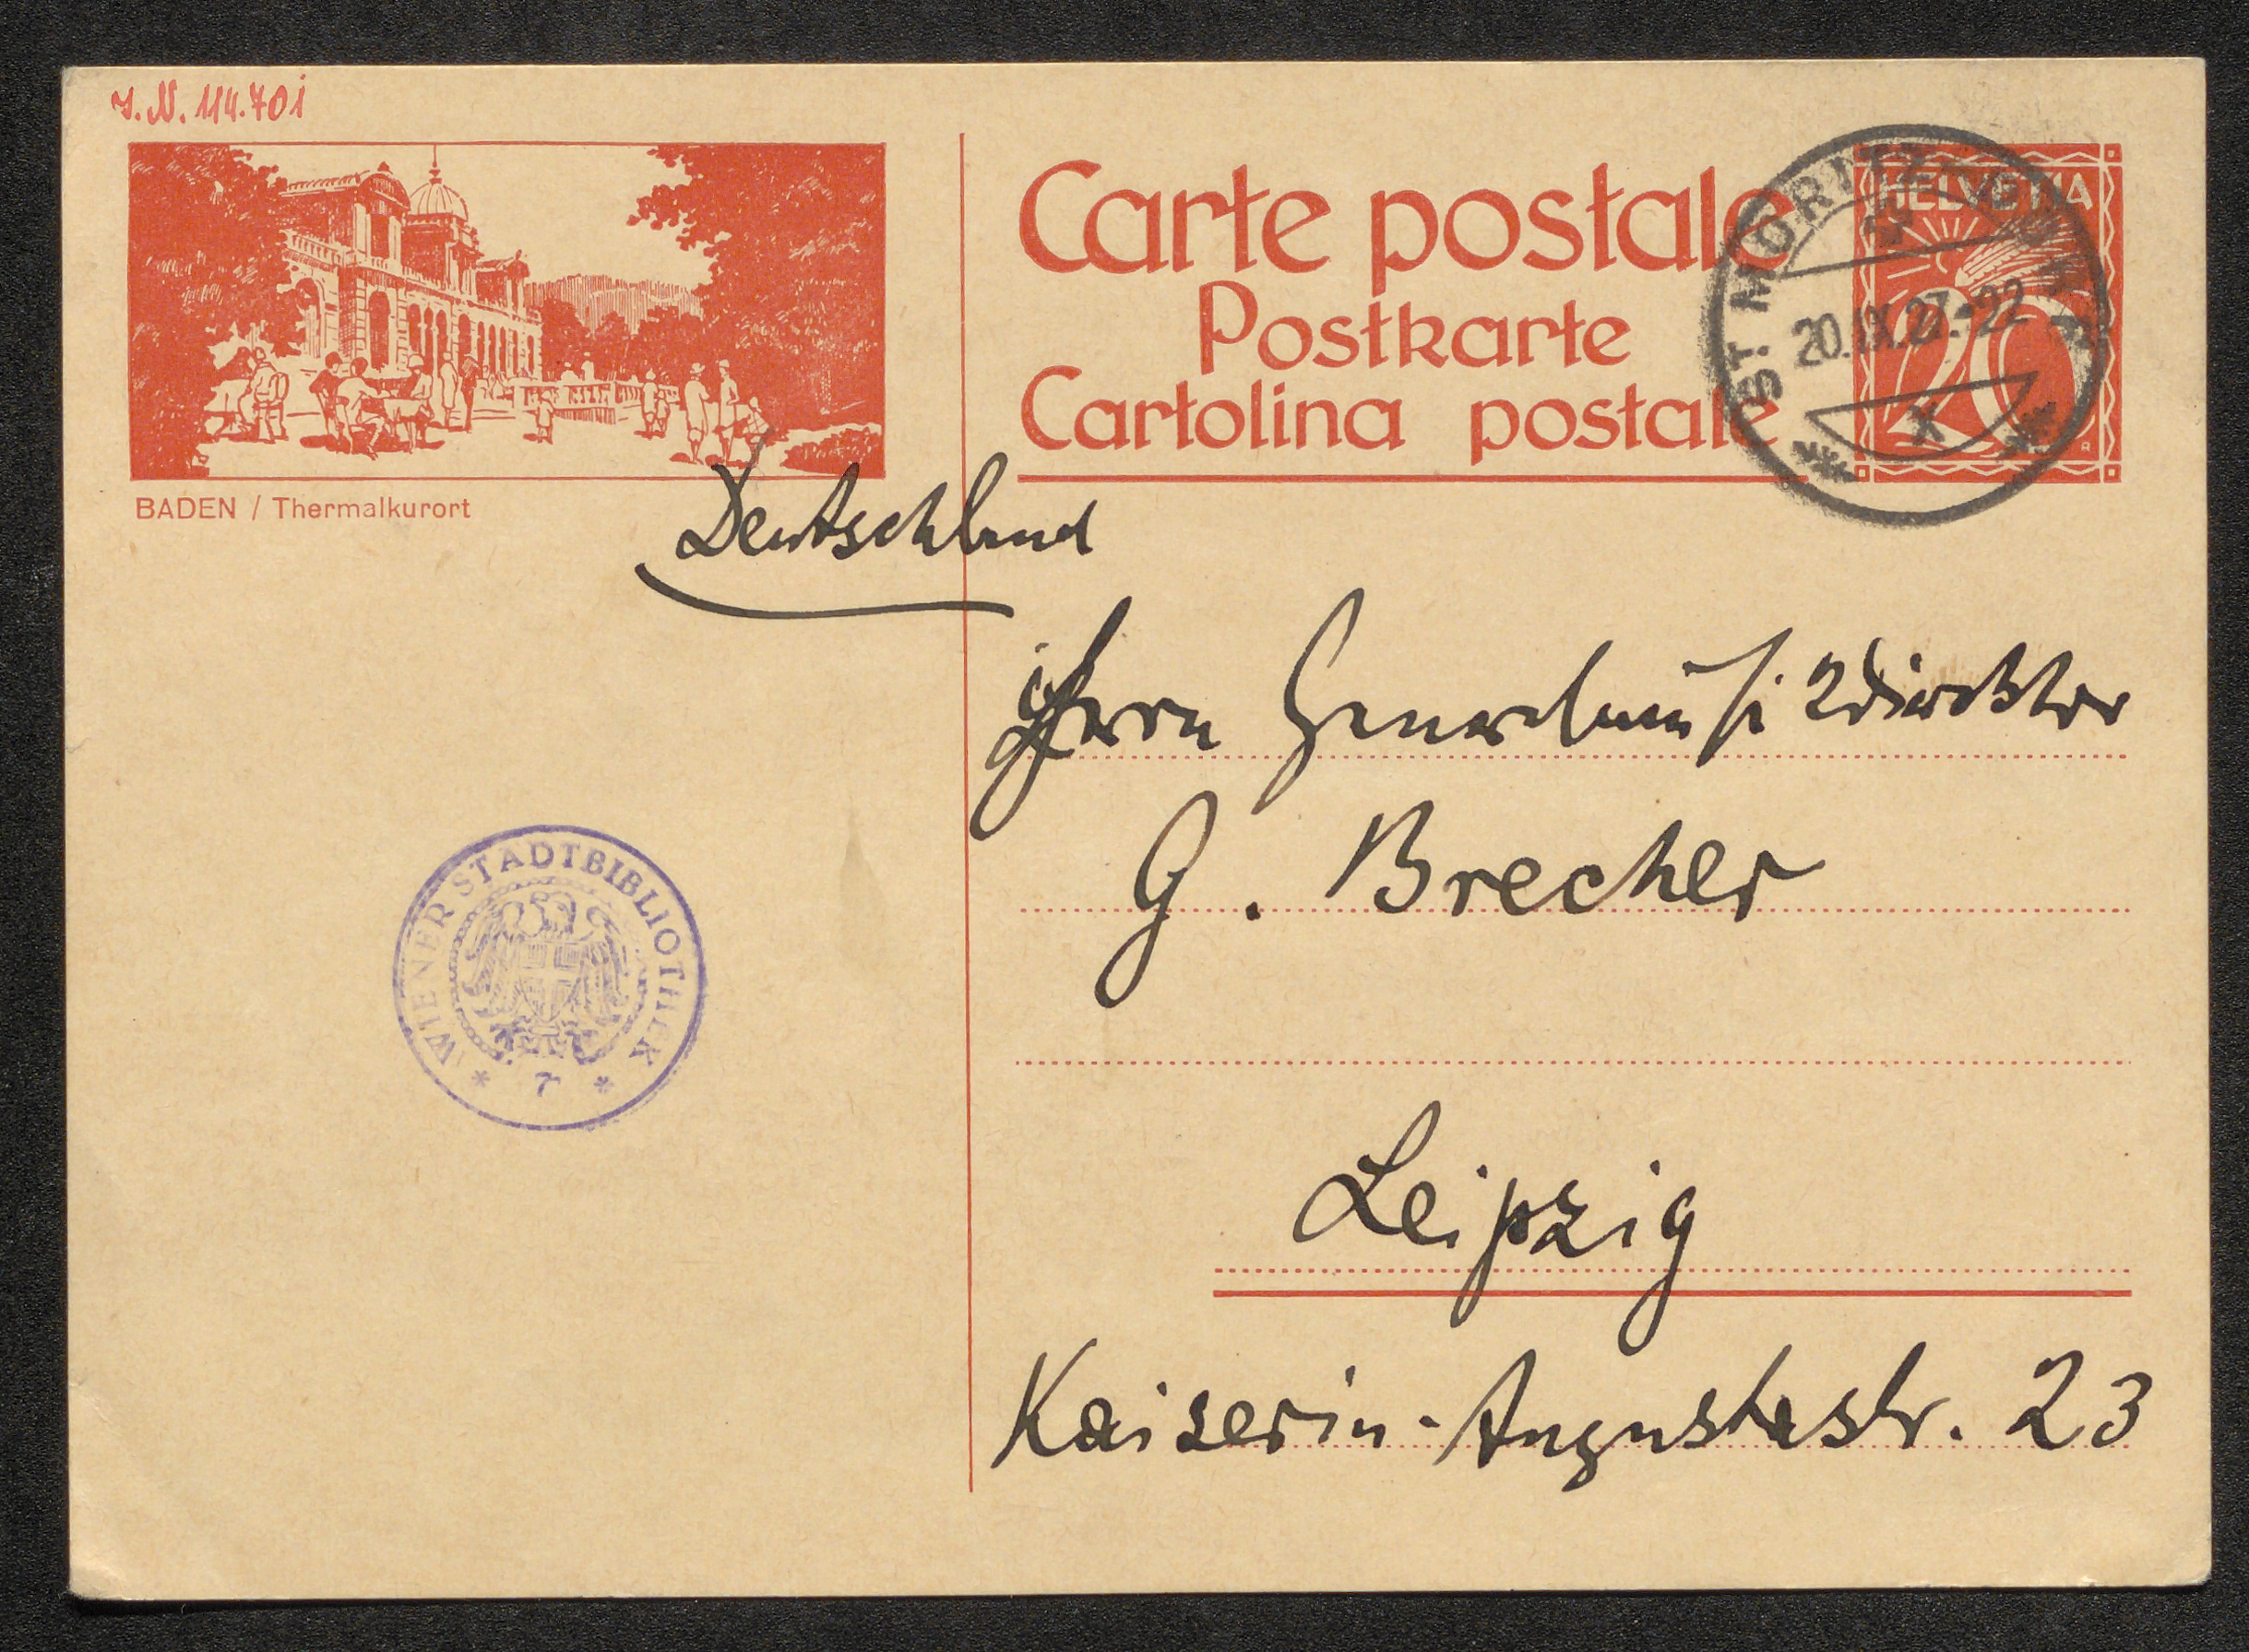 J.N. 114.701
Carte postale
Postkarte
Cartolina postale
HELVETIA
20
ST. MORITZ
20.IX.27.-22
X
BADEN / Thermalkurort
Deutschland
Herrn Generalmusikdirektor
G. Brecher
WIENER STADTBIBLIOTHEK
* 7 *
Leipzig
Kaiserin-Augustastr. 23